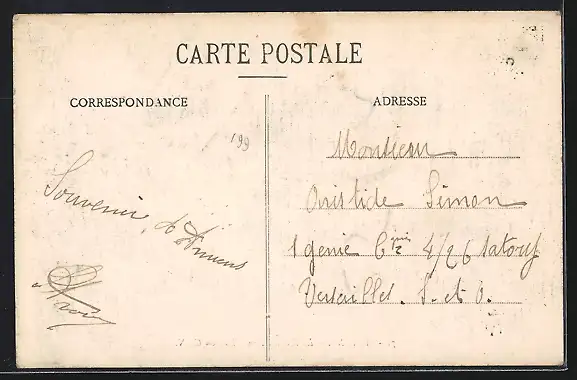 CARTE POSTALE
CORRESPONDANCE
ADRESSE
199
Souvenir d'Amiens
Monsieur
Aristide Simon
1 genie Cie 4/26 Satory
Versailles. S. et O.